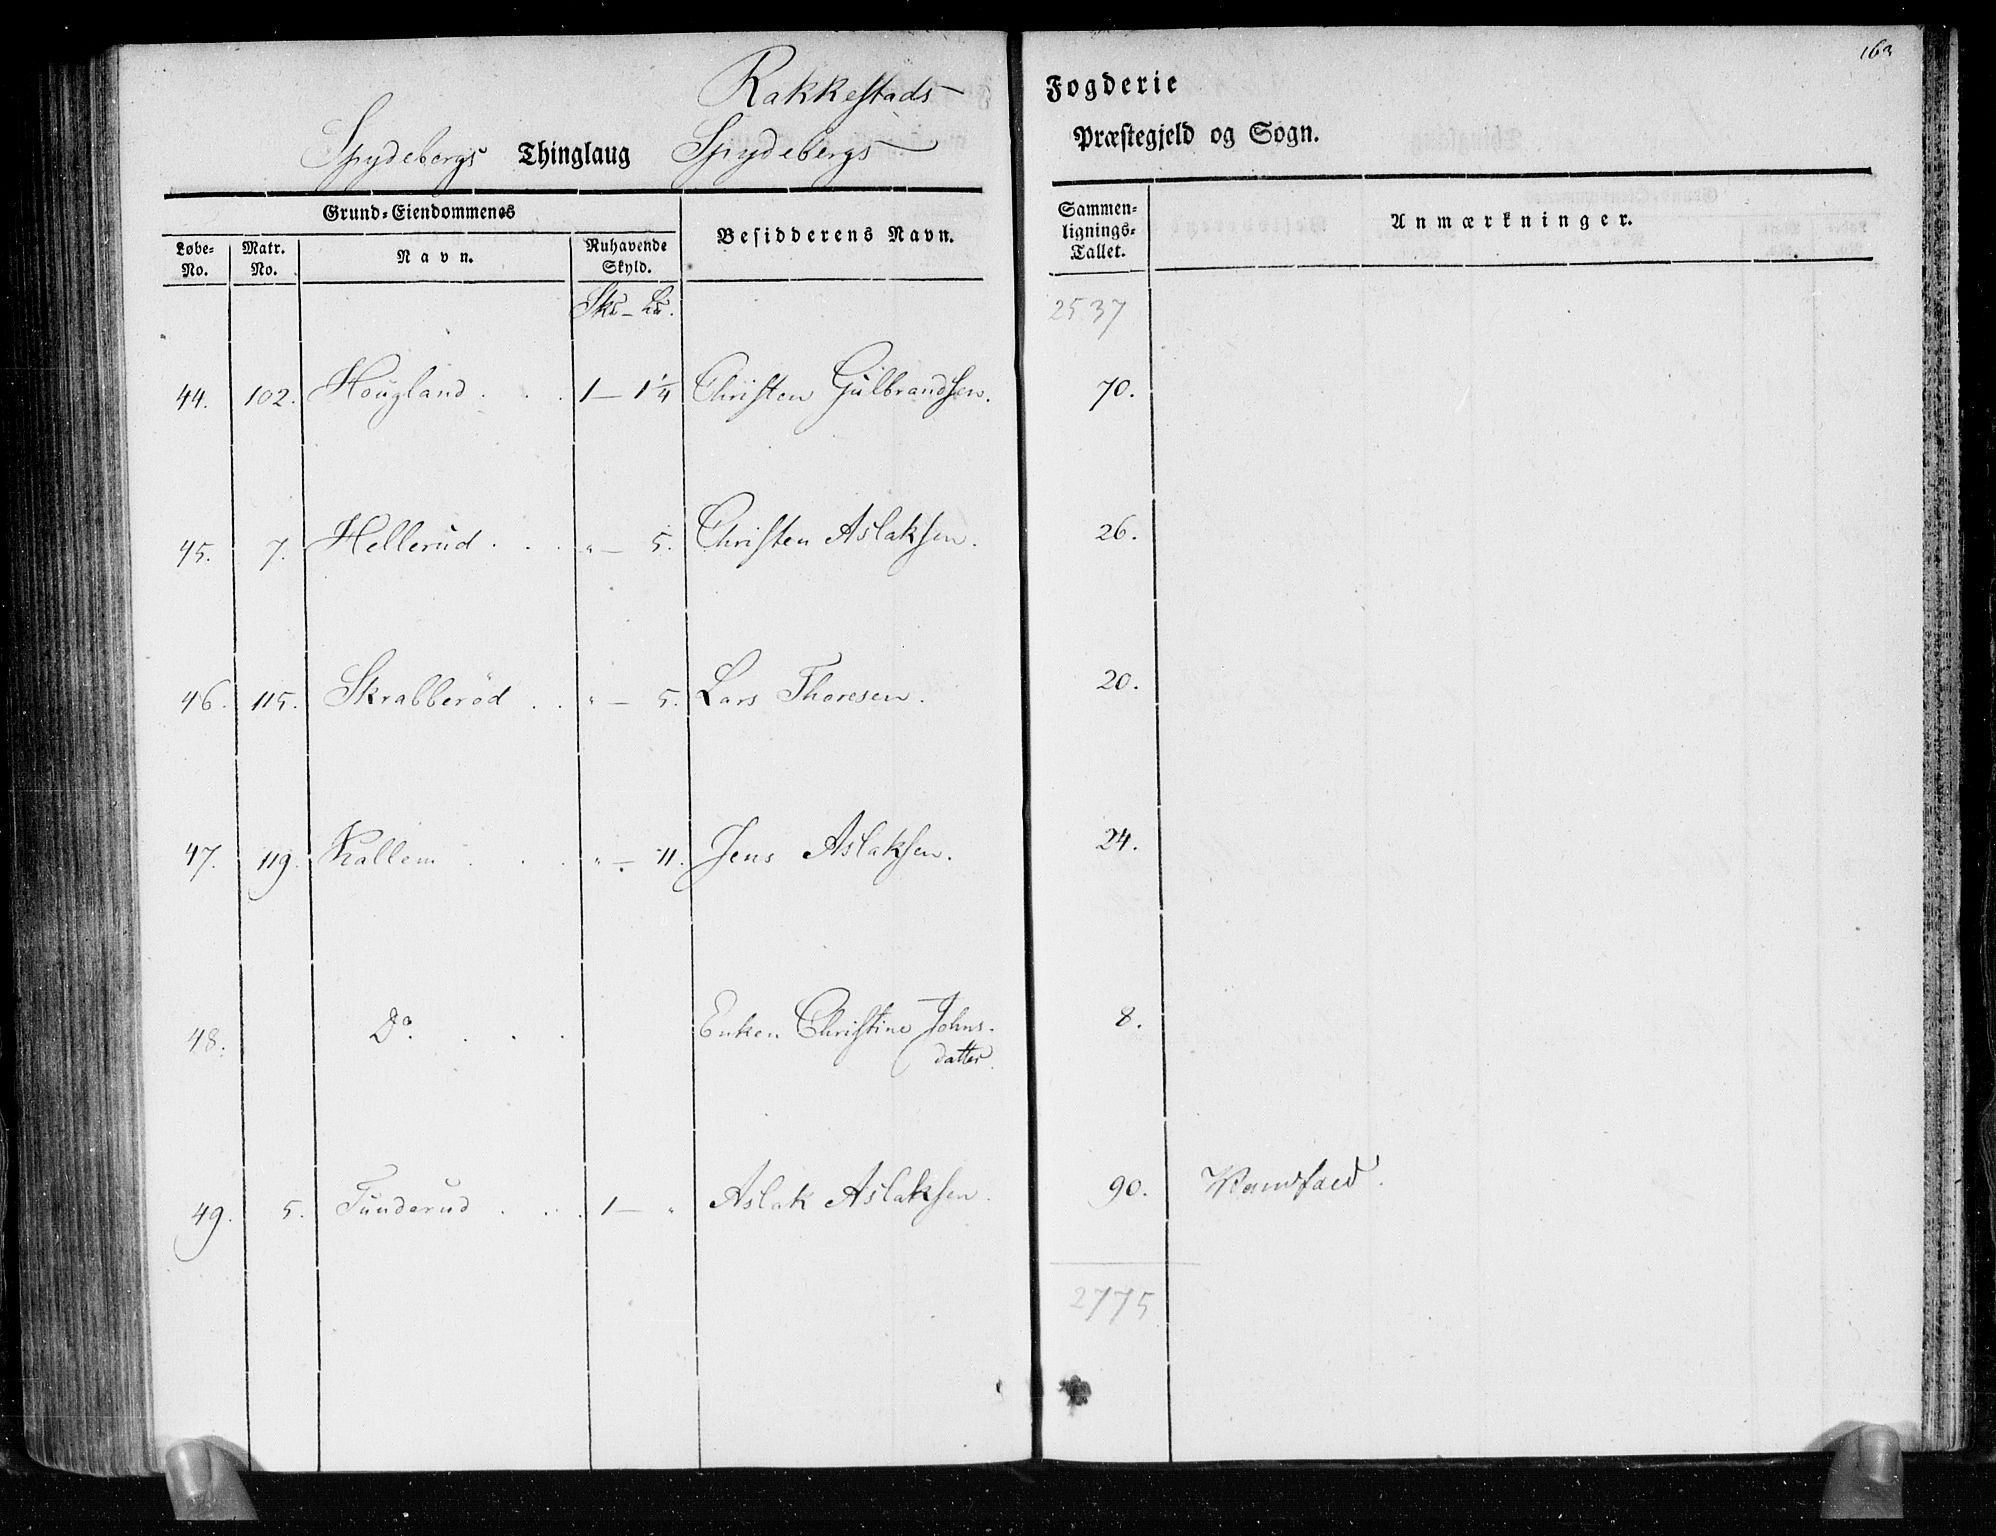 163
Rakkestads Fogderie
Spydebergs Thinglaug Spydebergs Præstegjeld og Sogn.
Grund-Eiendommenes
Løbe-No. Matr. No. Navn. Ruhavende Skyld. Besidderens Navn. Sammenlignings-Tallet. Anmærkninger.
Skd – Ld. 2537
44. 102. Hougland . . . 1 – 1 1/4 Christen Gulbrandsen. 70.
45. 7. Hellerud . . . " – 5. Christen Aslaksen. 26.
46. 115. Skrabberød . . " – 5. Lars Thoresen. 20.
47. 119. Kallem . . . " – 11. Jens Aslaksen. 24.
48. Do. . . . Enken Christine Johns- 8.
datter.
49. 5. Tunderud . . . 1 – " Aslak Aslaksen. 90.
2775